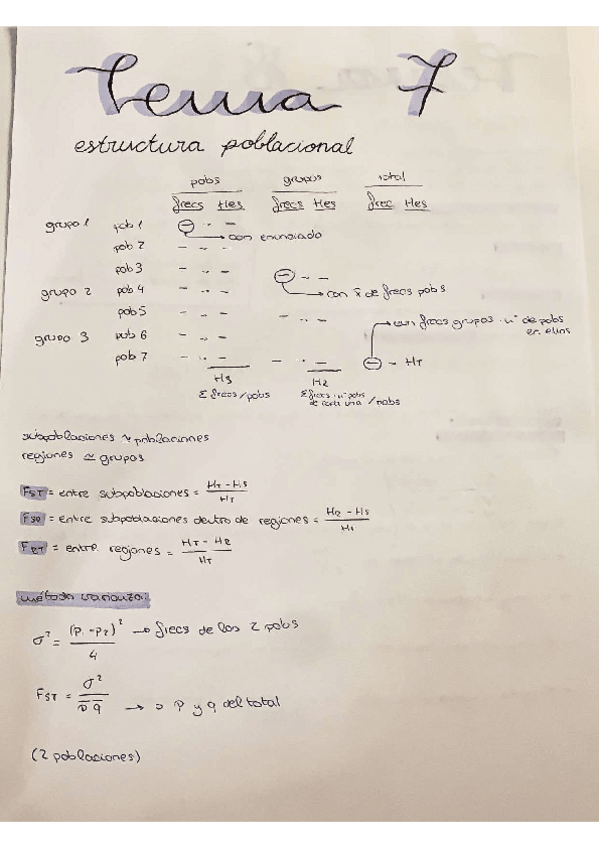 Tema 7
estructura poblacional
pobs grupos total
frecs Hes frecs Hes frec Hes
grupo 1 pob 1 - . . -
con enunciado
pob 2 - . . -
pob 3 - . . -
con x̄ de frecs pobs
grupo 2 pob 4 - . . -
pob 5 - . . - - . . -
con frecs grupos · nº de pobs
en ellos
grupo 3 pob 6 - . . -
pob 7 - . . - - . . - - HT
HS H2
Σ frecs / pobs Σ frecs · nº pobs
de cada una / pobs
subpoblaciones ≃ poblaciones
regiones ≃ grupos
FST = entre subpoblaciones = HT - HS / HT
FSR = entre subpoblaciones dentro de regiones = HR - HS / HT
FRT = entre regiones = HT - HR / HT
método varianza
σ² = (P1 - P2)² / 4 → frecs de las 2 pobs
FST = σ² / p̄ q̄ → p y q del total
(2 poblaciones)